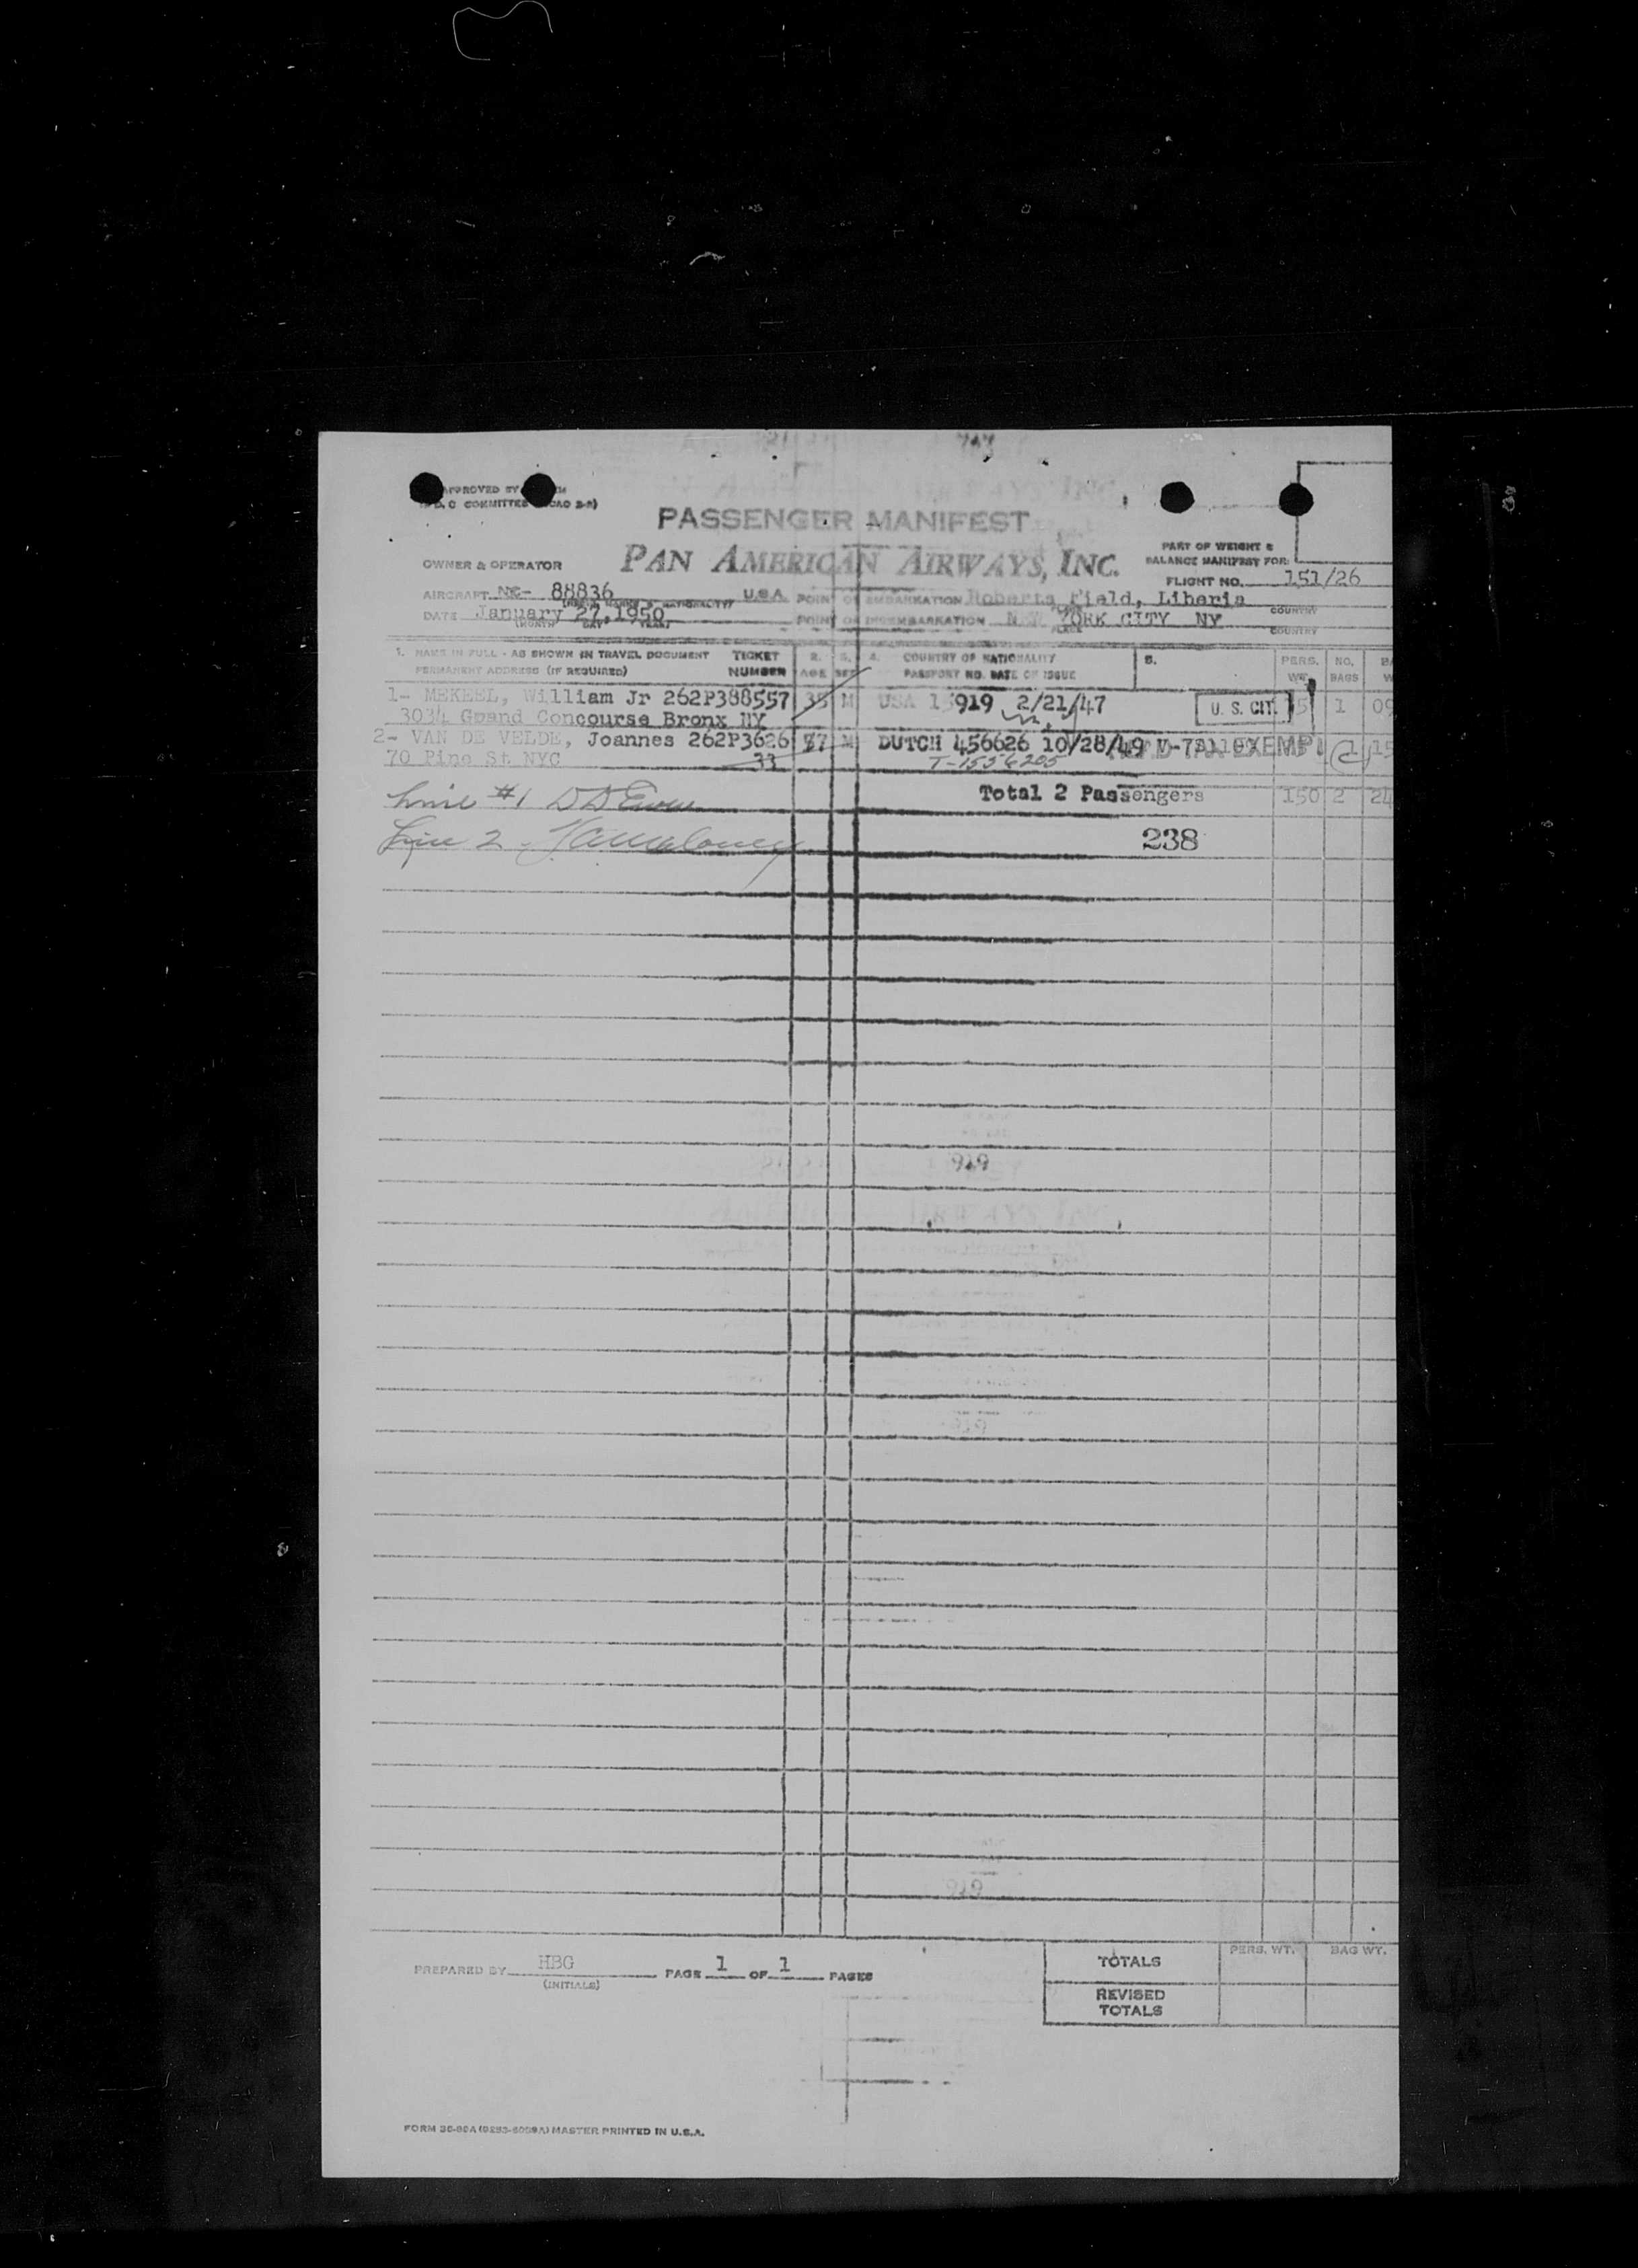 APPROVED BY
COMMITTEE
PASSENGER MANIFEST
OWNER & OPERATOR PAN AMERICAN AIRWAYS, INC.
PART OF WEIGHT &
BALANCE MANIFEST FOR:
FLIGHT NO. 151/26
AIRCRAFT NC- 88836 U.S.A. POINT OF EMBARKATION Roberts Field, Liberia
(REG. MARKS & NATIONALITY) COUNTRY
DATE January 27, 1950 POINT OF DISEMBARKATION NEW YORK CITY NY
(MONTH DAY YEAR) PLACE COUNTRY
1. NAME IN FULL - AS SHOWN IN TRAVEL DOCUMENT TICKET 2. 3. 4. COUNTRY OF NATIONALITY 5. PERS. NO.
PERMANENT ADDRESS (IF REQUIRED) NUMBER AGE SEX PASSPORT NO. DATE OF ISSUE WT. BAGS
1- MEKEEL, William Jr 262P388557 35 M USA 13919 2/21/47 U. S. CIT. 1 09
3034 Grand Concourse Bronx NY
2- VAN DE VELDE, Joannes 262P3626 M DUTCH 456626 10/28/49 EXEMPT 1 15
70 Pine St NYC 33 T-1556205
Line #1 Total 2 Passengers 150 2 24
Line 2 238
PREPARED BY HBG PAGE 1 OF 1 PAGES
(INITIALS)
PERS. WT. BAG WT.
TOTALS
REVISED
TOTALS
MASTER PRINTED IN U.S.A.